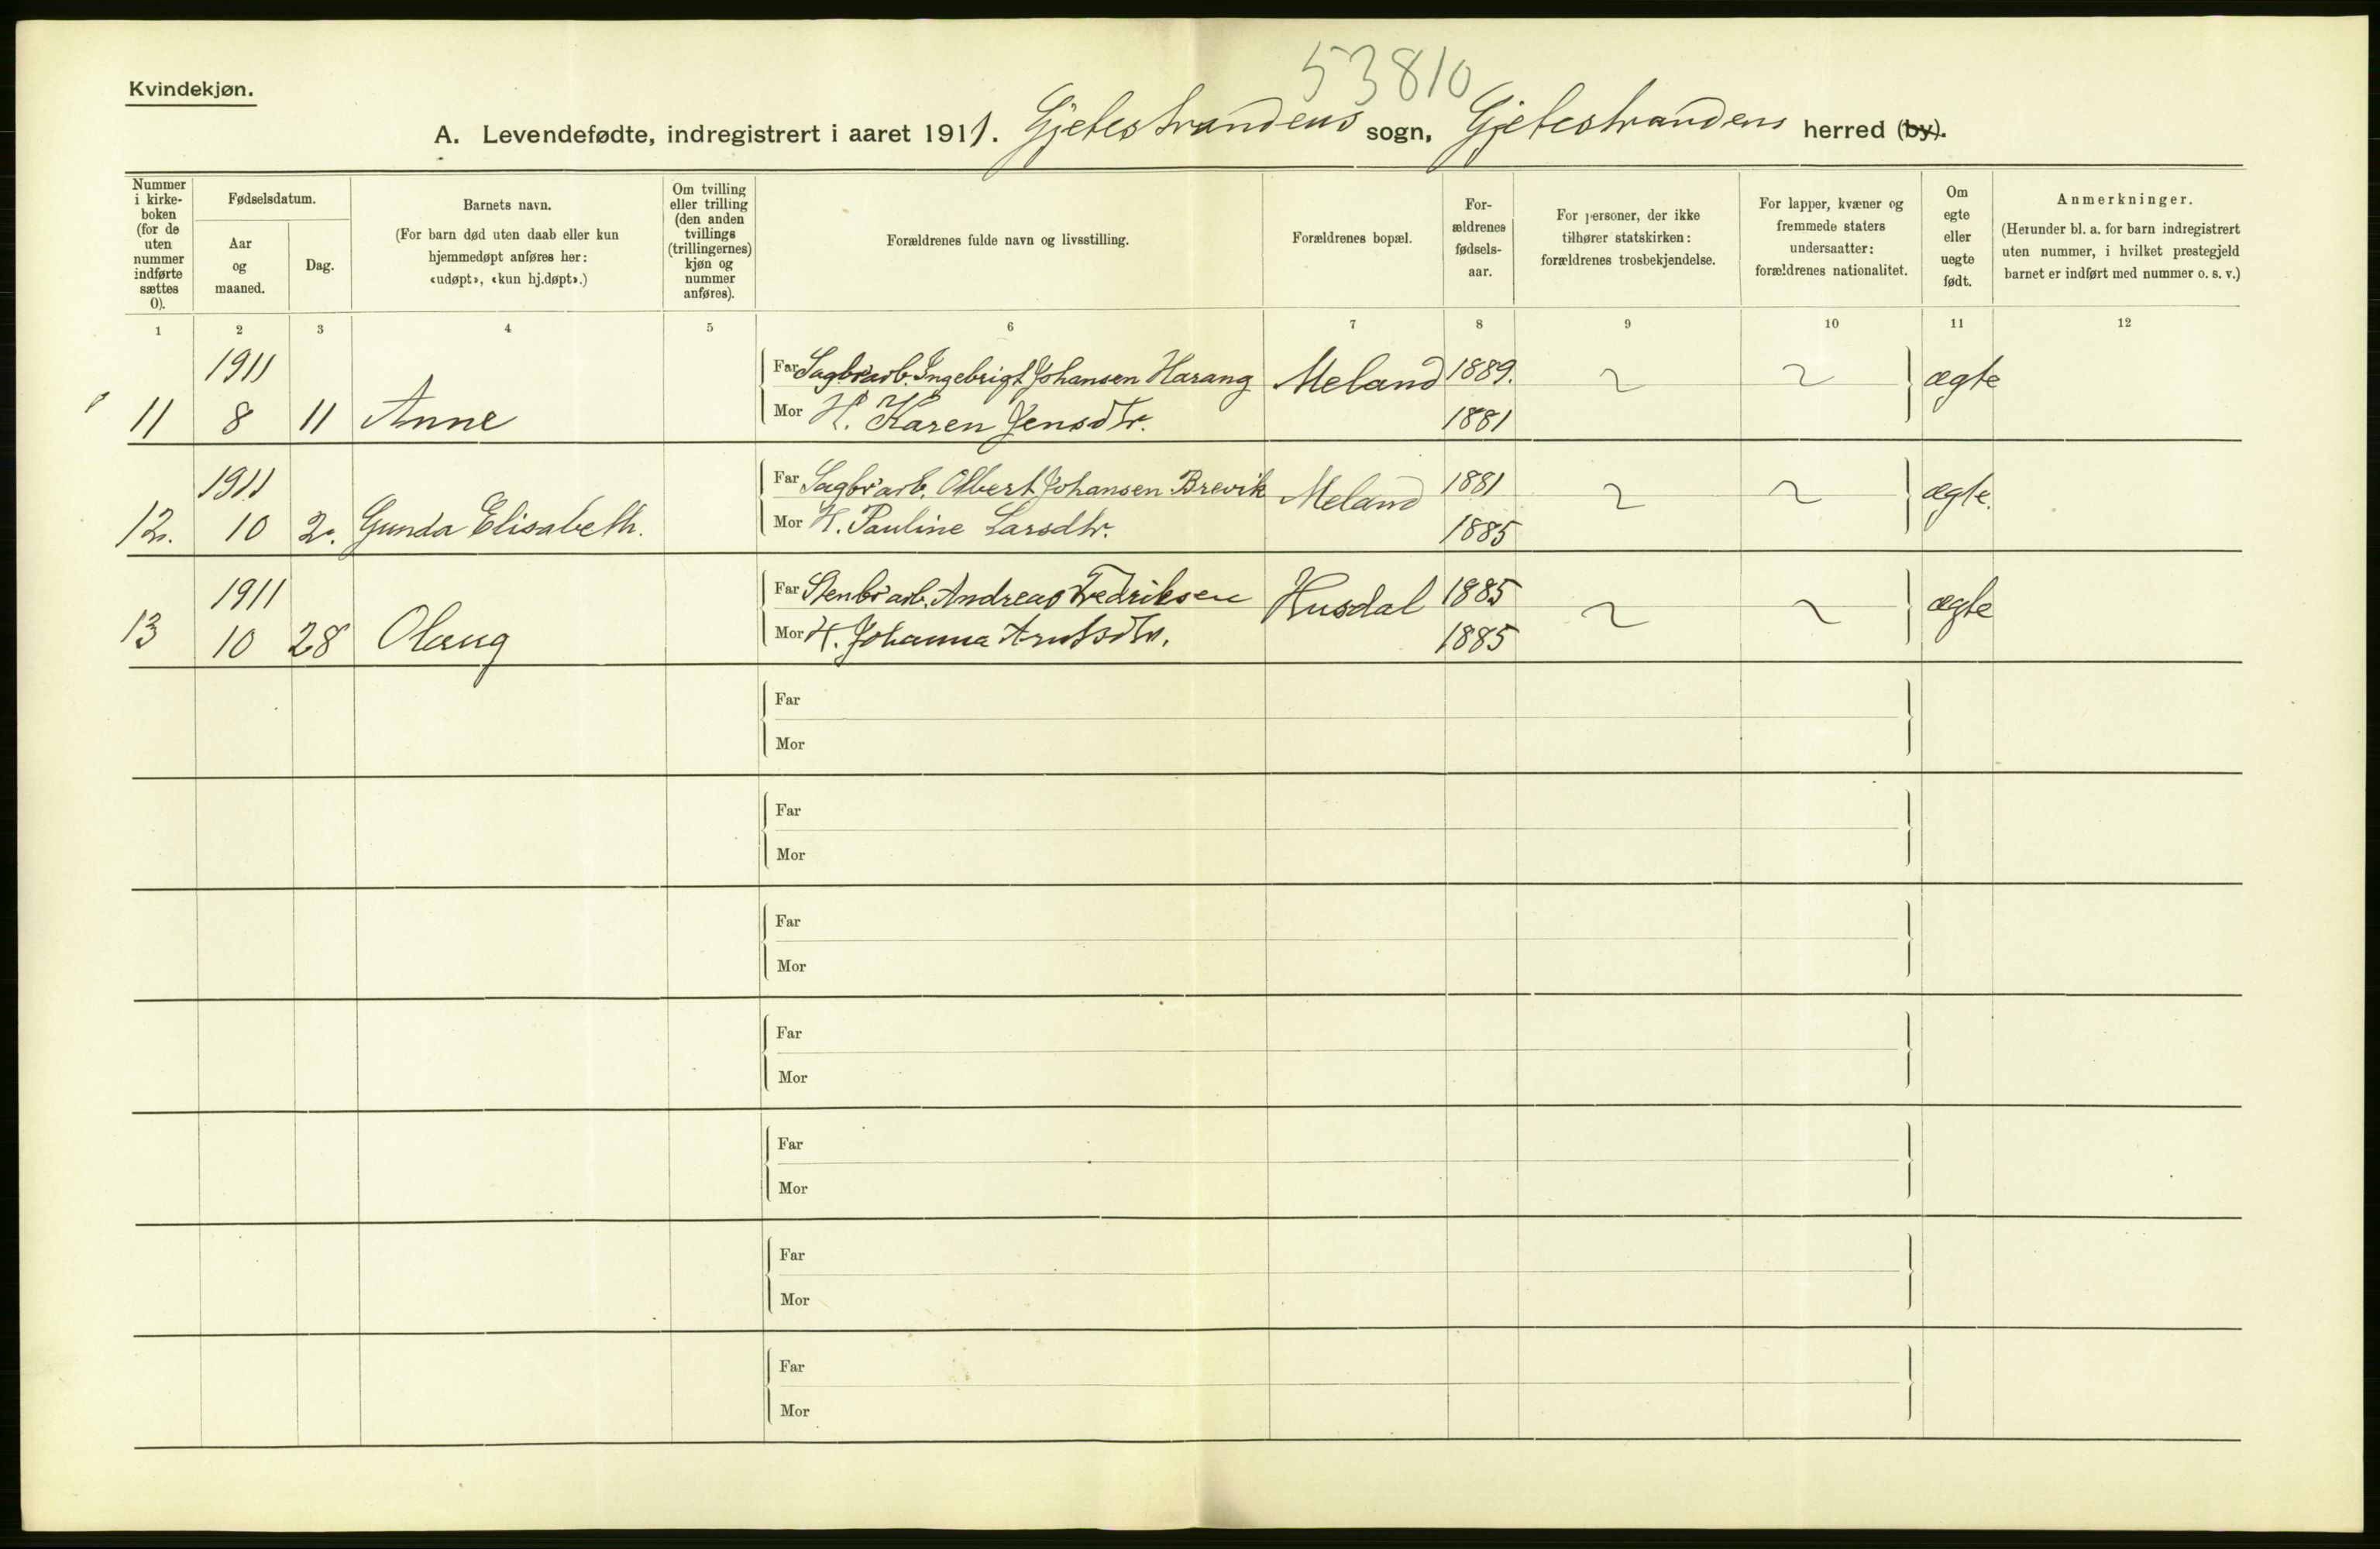 53810
Kvindekjøn.
A. Levendefødte, indregistrert i aaret 1911. Gjetestrandens sogn, Gjetestrandens herred (by).
Nummer i kirke-boken (for de uten nummer indførte sættes 0).
Fødselsdatum.
Aar og maaned.
Dag.
Barnets navn.
(For barn død uten daab eller kun
hjemmedøpt anføres her:
«udøpt», «kun hj.døpt».)
Om tvilling eller trilling (den anden tvillings (trillingernes) kjøn og nummer anføres).
Forældrenes fulde navn og livsstilling.
Forældrenes bopæl.
For-ældrenes fødsels-aar.
For personer, der ikke
tilhører statskirken:
forældrenes trosbekjendelse.
For lapper, kvæner og
fremmede staters
undersaatter:
forældrenes nationalitet.
Om egte eller uegte født.
Anmerkninger.
(Herunder bl. a. for barn indregistrert
uten nummer, i hvilket prestegjeld
barnet er indført med nummer o. s. v.)
1 2 3 4 5 6 7 8 9 10 11 12
1911 Far Sagbr.arb. Ingebrigt Johansen Harang Meland 1889. ægte
11 8 11 Anne Mor H. Karen Jensdtr. 1881
1911 Far Sagbr.arb. Albert Johansen Brevik Meland 1881 ægte.
12. 10 2. Gunda Elisabeth. Mor H. Pauline Larsdtr. 1885
1911 Far Stenbr.arb. Andreas Fredriksen Husdal 1885 ægte
13 10 28 Olaug Mor H. Johanna Arntsdtr. 1885
Far
Mor
Far
Mor
Far
Mor
Far
Mor
Far
Mor
Far
Mor
Far
Mor